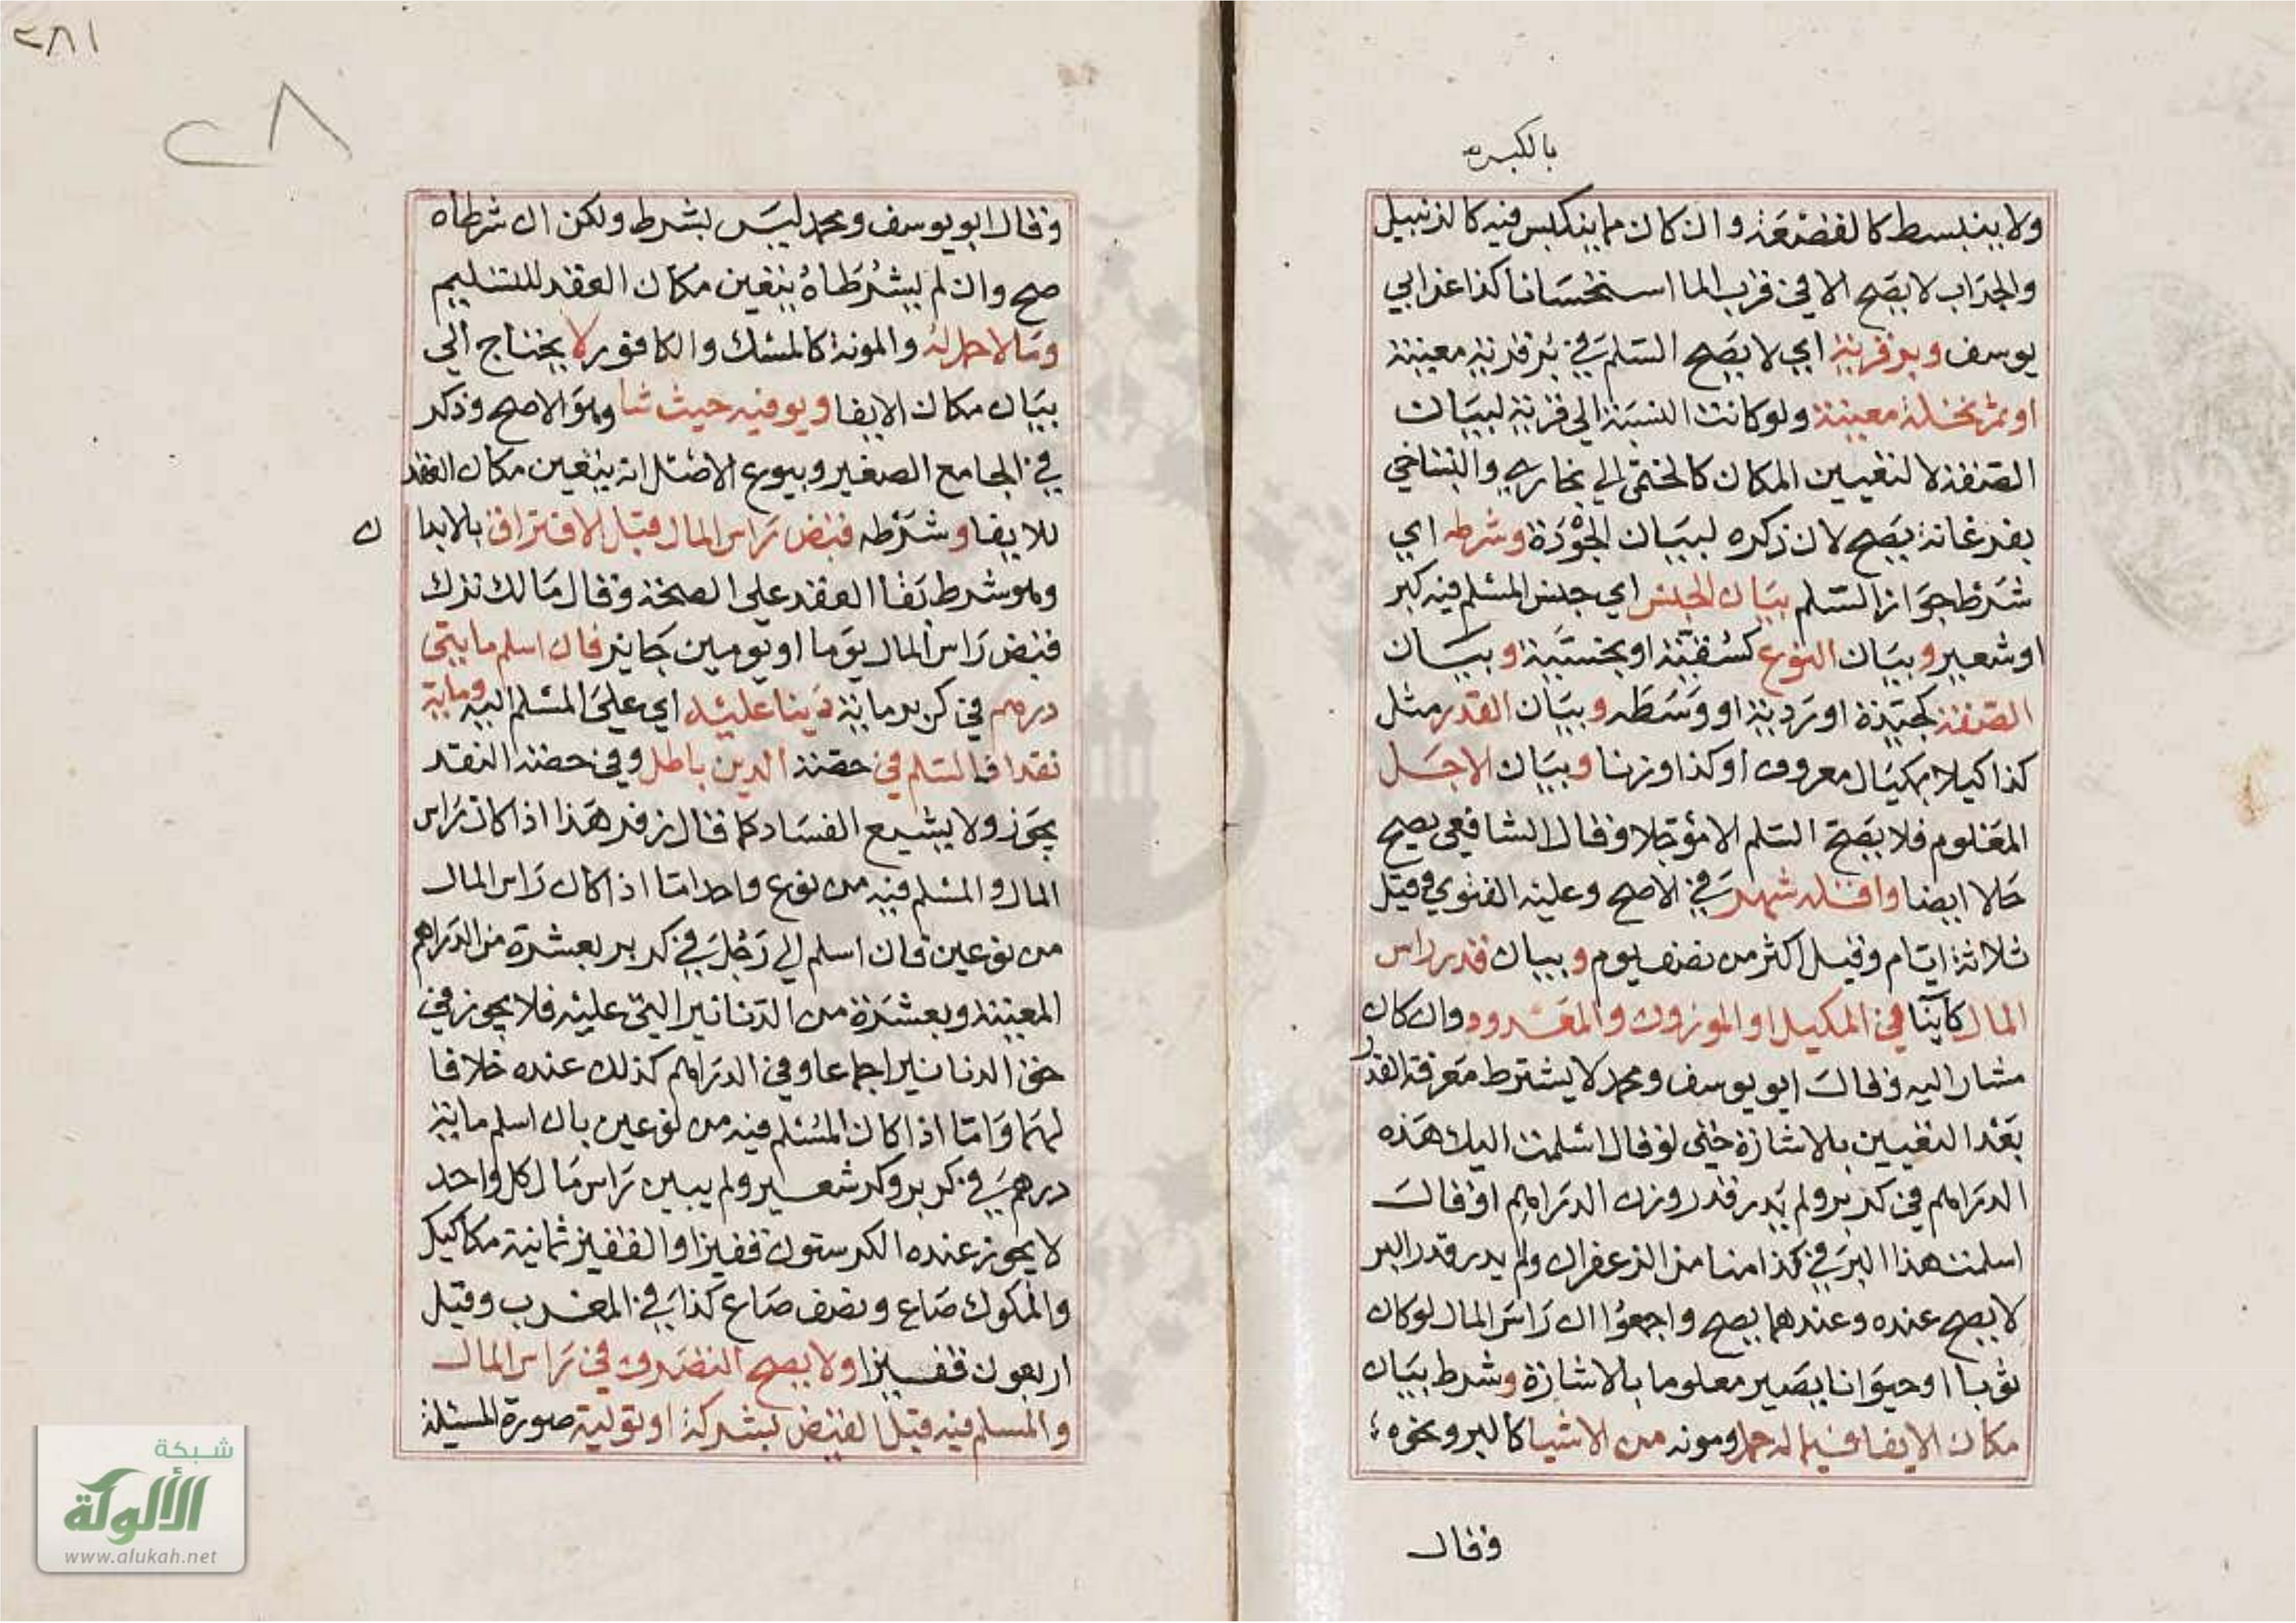 بالكبس
ولا ينبسط كالقصعة وان كان مما ينكبس فيه كالزنبيل
والجراب لا يصح الا في قرب الما استحسانا كذا عن ابي
يوسف وبر قرية اي لا يصح السلم في بر قرية معينة
او ثمر نخلة معينة ولو كانت النسبة الي قرية لبيان
الصفة لا لتعيين المكان كالخشمراني ببخاري والبساخي
بفرغانة يصح لان ذكره لبيان الجودة وشرطه اي
شرط جواز السلم بيان الجنس اي جنس المسلم فيه كبر
او شعير وبيان النوع كسقية او بخسية وبيان
الصفة كجيدة او ردية او وسطه وبيان القدر مثل
كذا كيلا بمكيال معروف او كذا وزنا وبيان الاجل
المعلوم فلا يصح السلم الا مؤجلا وقال الشافعي يصح
حالا ايضا واقله شهر في الاصح وعليه الفتوي وقيل
ثلاثة ايام وقيل اكثر من نصف يوم وبيان قدر راس
المال كاينا في المكيل او الموزون والمعدود وان كان
مشارا اليه وقال ابو يوسف ومحمد لا يشترط معرفة القدر
بعد التعيين بالاشارة حتي لو قال اسلمت اليك هذه
الدراهم في كر بر ولم يدر قدر وزن الدراهم او قال
اسلمت هذا البر في كذا منا من الزعفران ولم يدر قدر البر
لا يصح عنده وعندهما يصح واجمعوا ان راس المال لو كان
ثوبا او حيوانا يصير معلوما بالاشارة وشرط بيان
مكان الايفا فيما له حمل ومونه من الاشيا كالبر ونحوه
وقال
٢٨١
٢٨
وقال ابو يوسف ومحمد ليس بشرط ولكن ان شرطاه
صح وان لم يشرطاه يتعين مكان العقد للتسليم
وما لا حمل له والمونة كالمسك والكافور لا يحتاج الي
بيان مكان الايفا ويوفيه حيث شا وهو الاصح وذكر
في الجامع الصغير وبيوع الاصل انه يتعين مكان العقد
للايفا وشرطه قبض راس المال قبل الافتراق بالابدا
ن
وهو شرط بقا العقد علي الصحة وقال مالك ترك
قبض راس المال يوما او يومين جايز فان اسلم مايتي
درهم في كر بر ماية دينا عليه اي علي المسلم اليه وماية
نقدا فالسلم في حصة الدين باطل وفي حصة النقد
يجوز ولا يشيع الفساد كما قال زفر هذا اذا كان راس
المال والمسلم فيه من نوع واحد اما اذا كان راس المال
من نوعين فان اسلم الي رجل في كر بر بعشرة من الدراهم
المعينة وبعشرة من الدنانير التي عليه فلا يجوز في
حق الدنانير اجماعا وفي الدراهم كذلك عنده خلافا
لهما واما اذا كان المسلم فيه من نوعين بان اسلم ماية
درهم في كر بر وكر شعير ولم يبين راس مال كل واحد
لا يجوز عنده الكر ستون قفيزا والقفيز ثمانية مكاكيك
والمكوك صاع ونصف صاع كذا في المغرب وقيل
اربعون قفيزا ولا يصح التصرف في راس المال
والمسلم فيه قبل القبض بشركة او تولية صورة المسئلة
شبكة
الألوكة
www.alukah.net